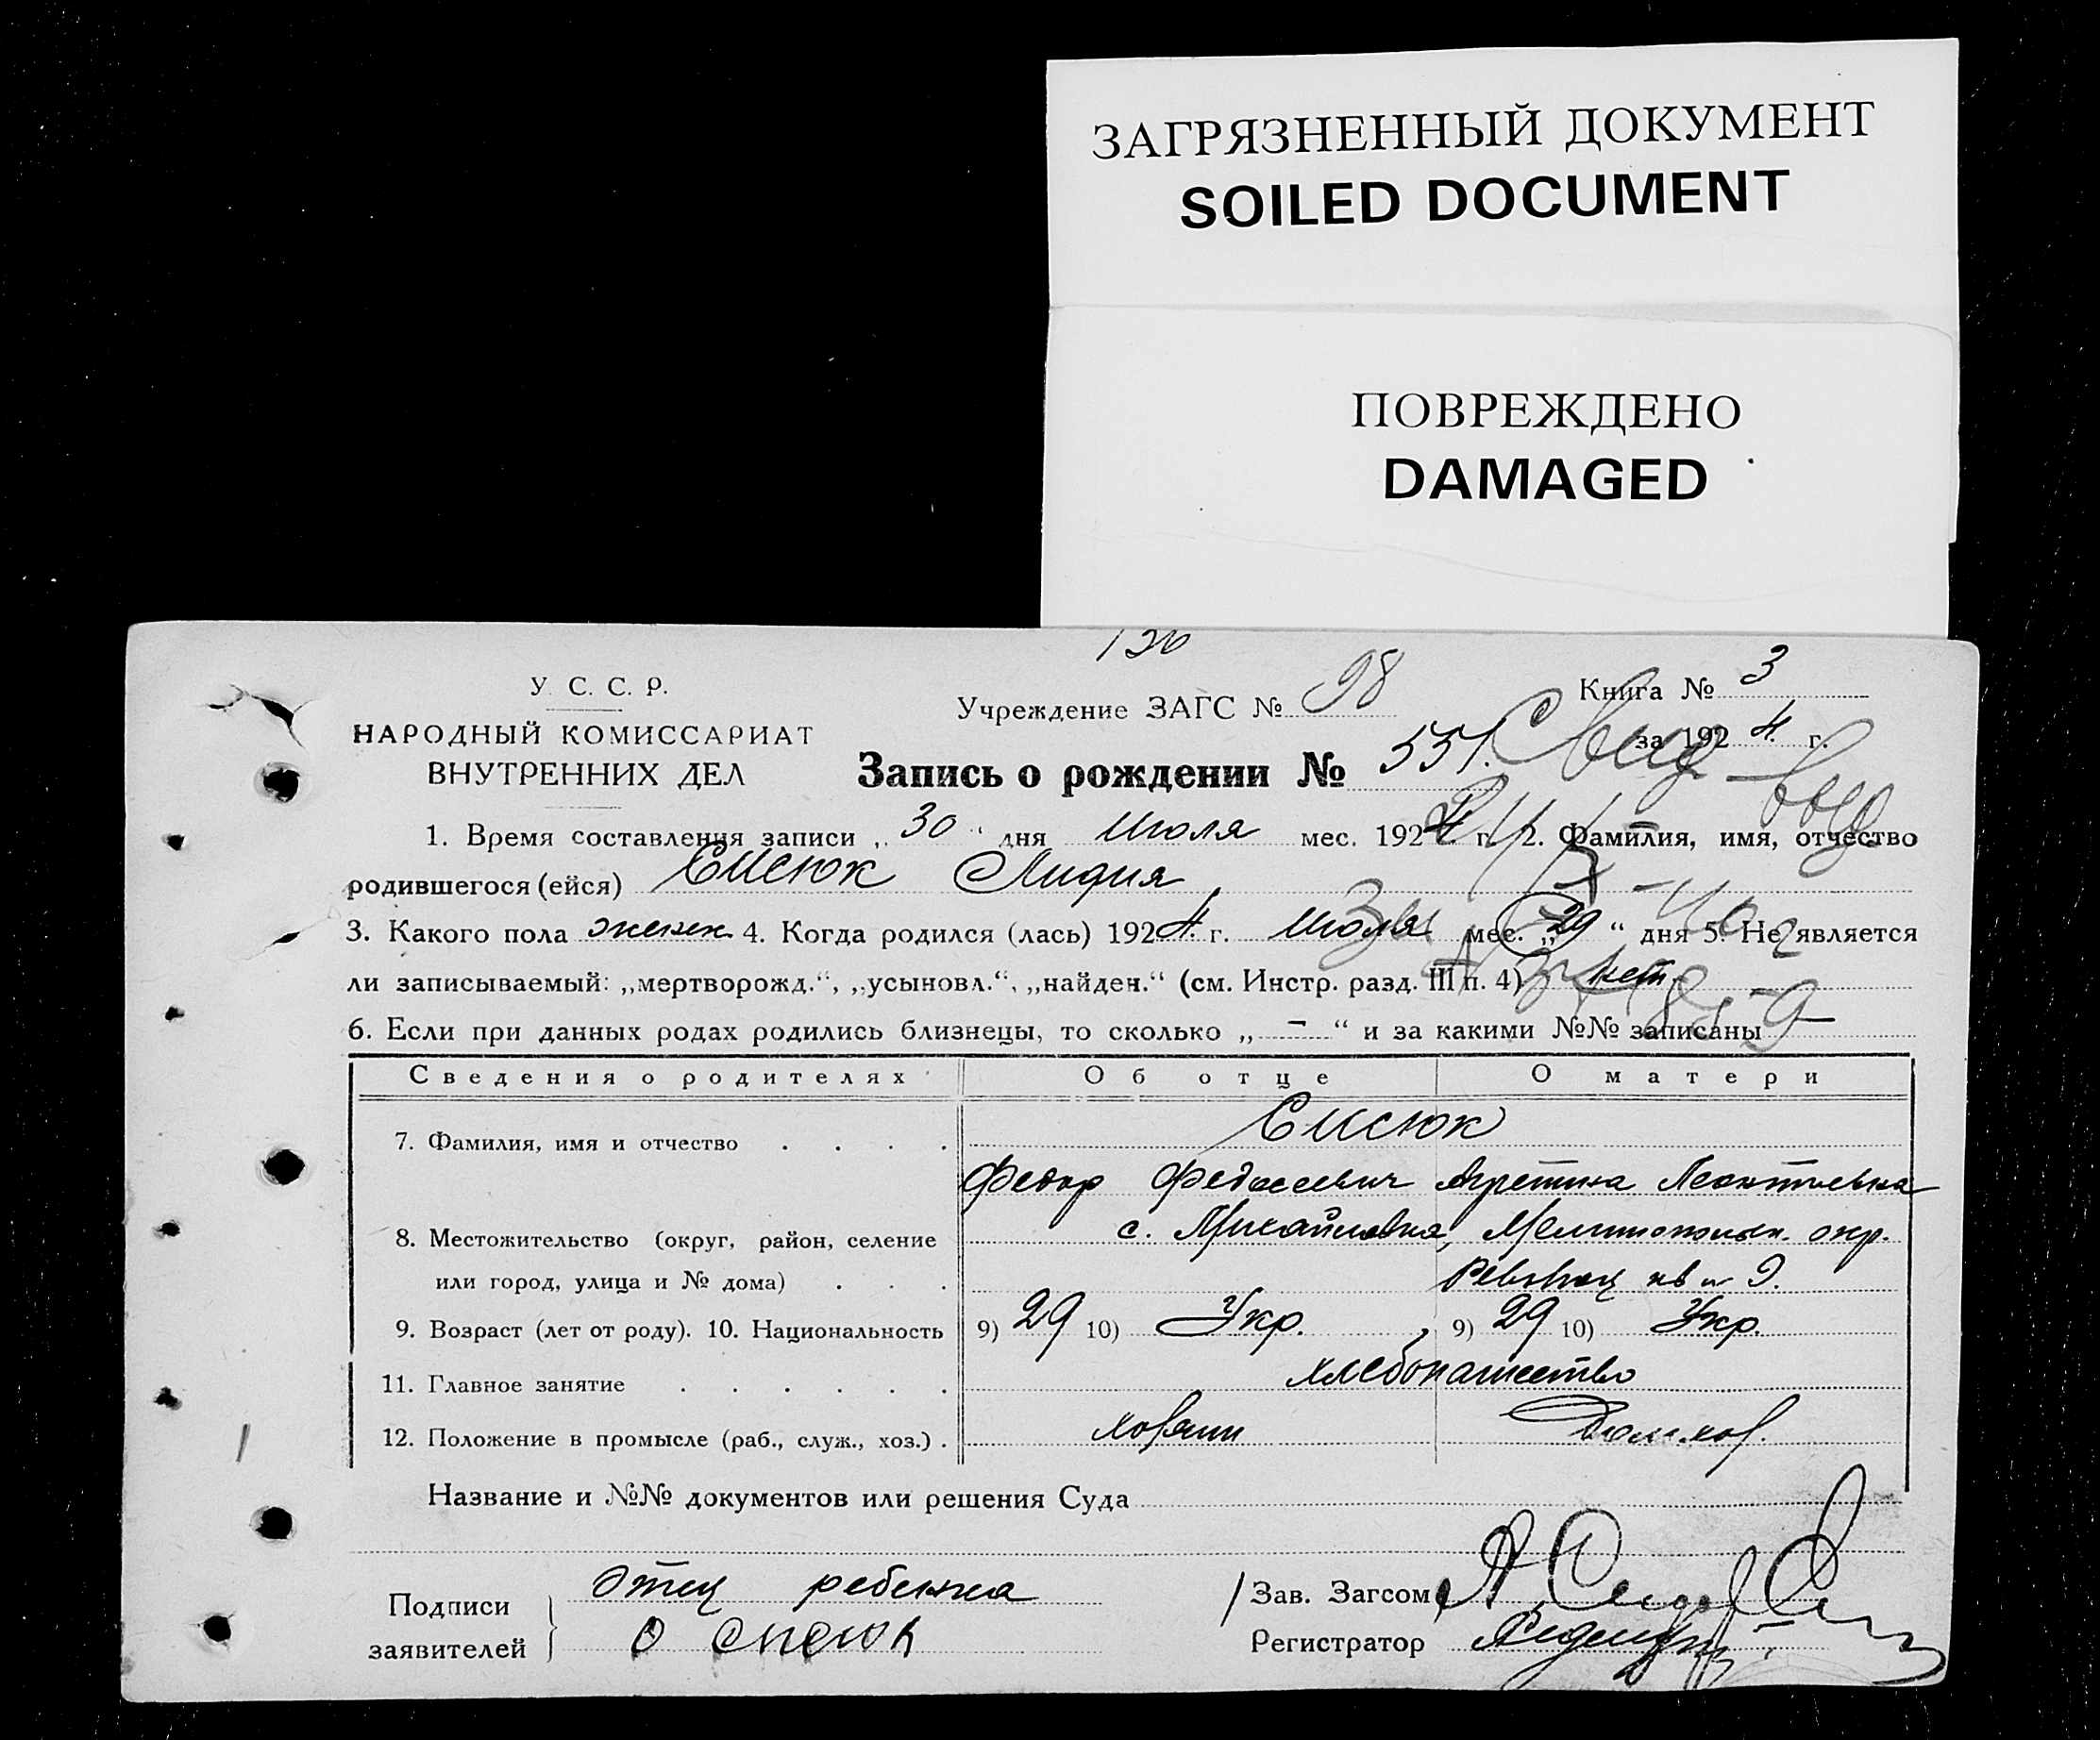 ЗАГРЯЗНЕННЫЙ ДОКУМЕНТ
SOILED DOCUMENT
ПОВРЕЖДЕНО
DAMAGED
У. С. С. Р.
НАРОДНЫЙ КОМИССАРИАТ
ВНУТРЕННИХ ДЕЛ
Учреждение ЗАГС № 98
Книга № 3
за 1924 г.
Запись о рождении № 551.
1. Время составления записи „30“ дня Июля мес. 1924 г. 2. Фамилия, имя, отчество
родившегося (ейся) Снсюк Лидия
3. Какого пола женск 4. Когда родился (лась) 1924 г. Июля мес. „29“ дня 5. Не является
ли записываемый: „мертворожд.“, „усыновл.“, „найден.“ (см. Инстр. разд. III п. 4) нет
6. Если при данных родах родились близнецы, то сколько „ – “ и за какими №№ записаны –
Сведения о родителях Об отце О матери
7. Фамилия, имя и отчество . . . .
Федор Федосеевич Леонтиевна
8. Местожительство (округ, район, селение с. Михайловка, Мелитопольск. окр.
или город, улица и № дома) . . .
9. Возраст (лет от роду). 10. Национальность 9) 29 10) Укр. 9) 29 10) Укр.
11. Главное занятие . . . . . . хлебопашество
12. Положение в промысле (раб., служ., хоз.) . хозяин Дом.хоз.
Название и №№ документов или решения Суда
Подписи
заявителей
Отец ребенка
Зав. Загсом
Регистратор